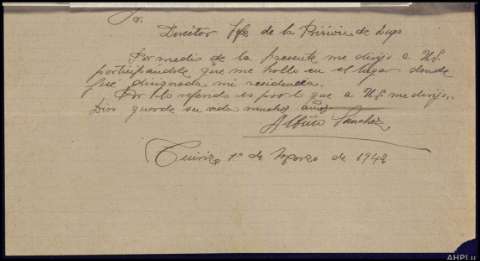 Sr.
Director Jefe de la Prisión de Lugo
Por medio de la presente me dirijo a U.S.
participandole que me hallo en el lugar donde
fue dinada mi residencia.
Por lo referido es por lo que a U.S. me dirijo.
Dios guarde su vida muchos años
Albino Sanchez
1º de Marzo de 1942
AHPL